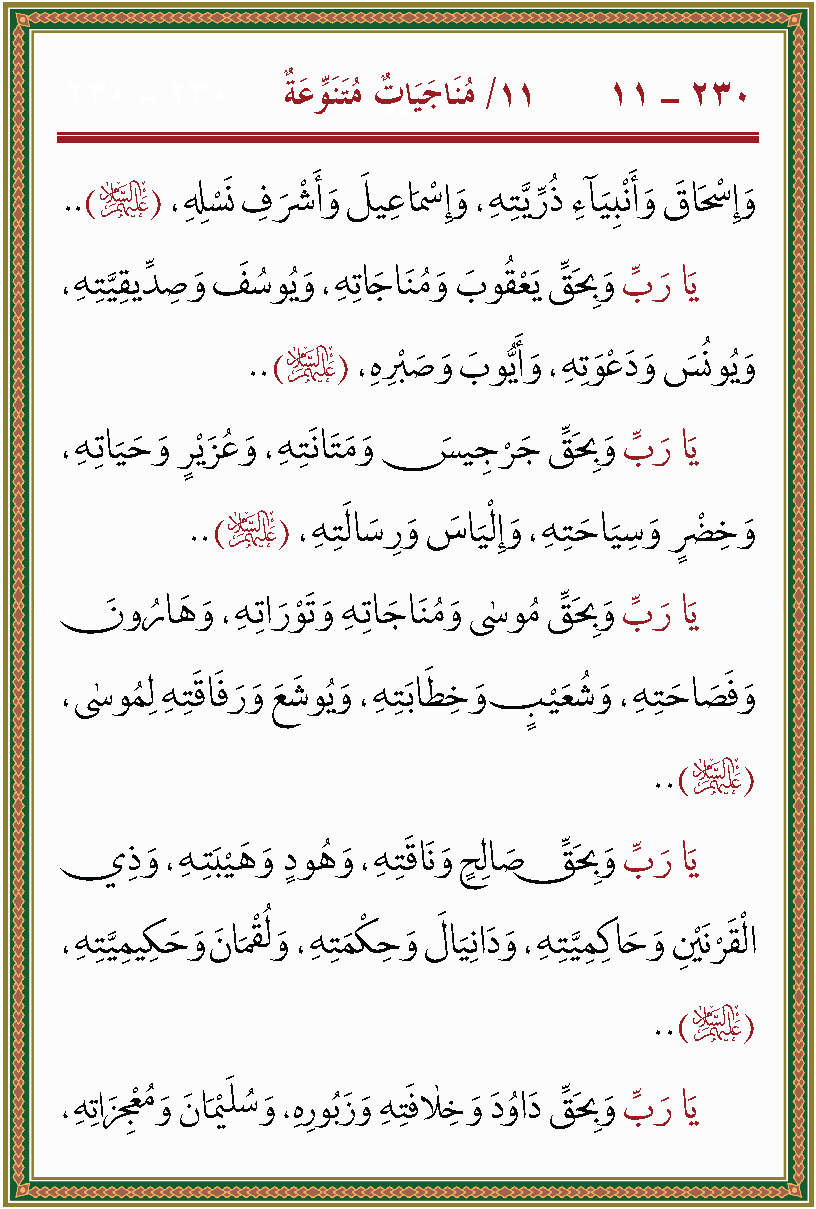 ٢٣٠ – ١١ ١١/ مُنَاجَيَاتٌ مُتَنَوِّعَةٌ
وَإِسْحَاقَ وَأَنْبِيَآءِ ذُرِّيَّتِهِ، وَإِسْمَاعِيلَ وَأَشْرَفِ نَسْلِهِ، (عَلَيْهِمُ السَّلَامُ)..
يَا رَبِّ وَبِحَقِّ يَعْقُوبَ وَمُنَاجَاتِهِ، وَيُوسُفَ وَصِدِّيقِيَّتِهِ،
وَيُونُسَ وَدَعْوَتِهِ، وَأَيُّوبَ وَصَبْرِهِ، (عَلَيْهِمُ السَّلَامُ)..
يَا رَبِّ وَبِحَقِّ جَرْجِيسَ وَمَتَانَتِهِ، وَعُزَيْرٍ وَحَيَاتِهِ،
وَخِضْرٍ وَسِيَاحَتِهِ، وَإِلْيَاسَ وَرِسَالَتِهِ، (عَلَيْهِمُ السَّلَامُ)..
يَا رَبِّ وَبِحَقِّ مُوسٰى وَمُنَاجَاتِهِ وَتَوْرَاتِهِ، وَهَارُونَ
وَفَصَاحَتِهِ، وَشُعَيْبٍ وَخِطَابَتِهِ، وَيُوشَعَ وَرَفَاقَتِهِ لِمُوسٰى،
(عَلَيْهِمُ السَّلَامُ)..
يَا رَبِّ وَبِحَقِّ صَالِحٍ وَنَاقَتِهِ، وَهُودٍ وَهَيْبَتِهِ، وَذِي
الْقَرْنَيْنِ وَحَاكِمِيَّتِهِ، وَدَانِيَالَ وَحِكْمَتِهِ، وَلُقْمَانَ وَحَكِيمِيَّتِهِ،
(عَلَيْهِمُ السَّلَامُ)..
يَا رَبِّ وَبِحَقِّ دَاوُدَ وَخِلَافَتِهِ وَزَبُورِهِ، وَسُلَيْمَانَ وَمُعْجِزَاتِهِ،